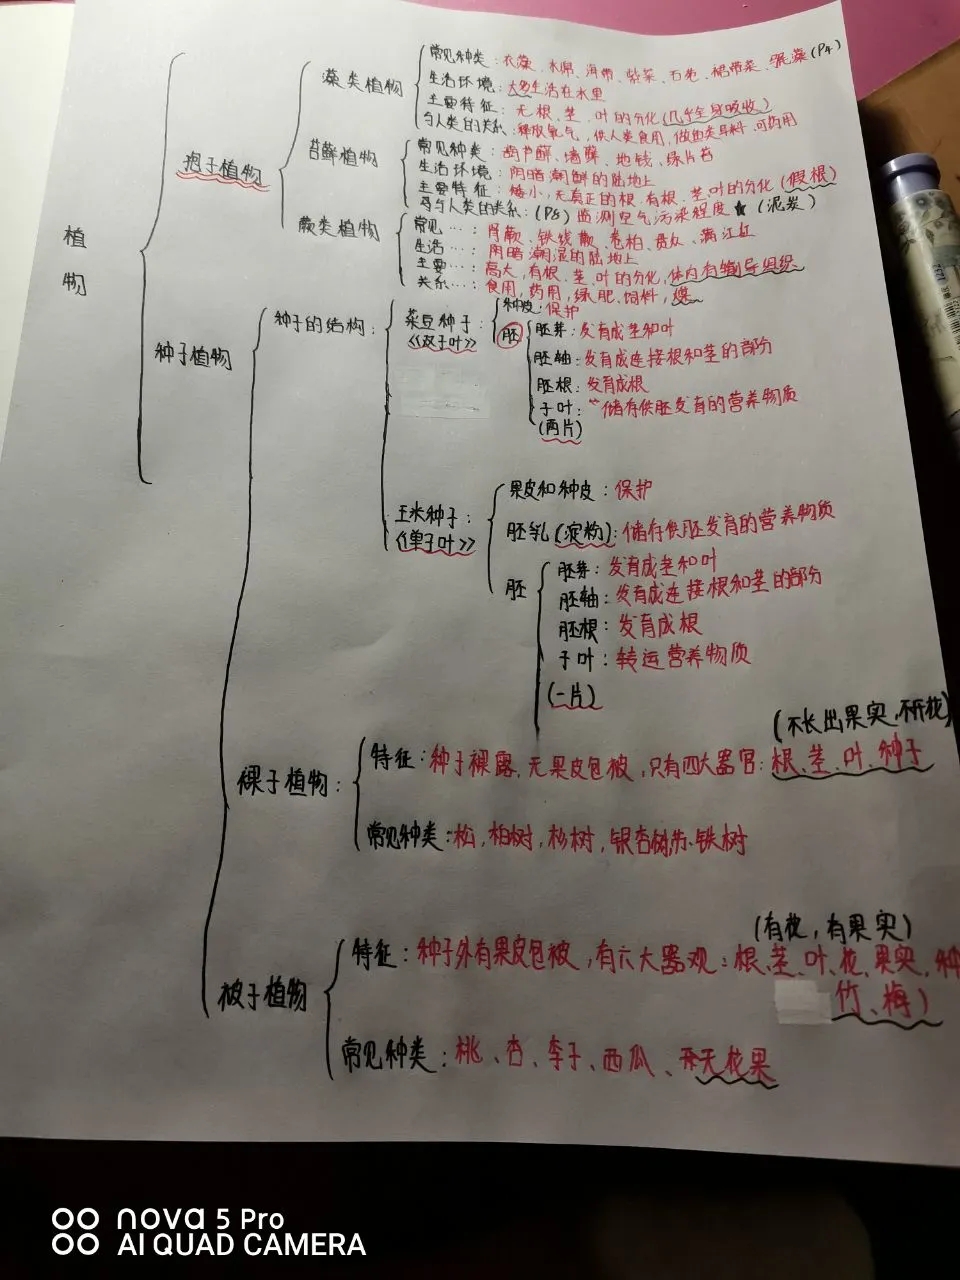 植物
孢子植物
藻类植物
常见种类：衣藻、水绵、海带、紫菜、石花、裙带菜、(P4)
生活环境：大多生活在水里
主要特征：无根、茎、叶的分化(几乎全身吸收)
与人类的关系：释放氧气，供人类食用，做鱼类耳料，可药用
苔藓植物
常见种类：葫芦藓、墙藓、地钱、绿片苔
生活环境：阴暗潮鲜的陆地上
主要特征：矮小，无真正的根，有根、茎、叶的分化(假根)
与人类的关系：(P8)监测空气污染程度★(泥炭)
蕨类植物
常见…：肾蕨、铁线蕨、卷柏、贯众、满江红
生活…：阴暗潮湿的陆地上
主要…：高大，有根、茎、叶的分化，体内有输导组织
关系…：食用，药用，绿肥、饲料，煤
种子植物
种子的结构：
菜豆种子：
《双子叶》
种皮：保护
胚
胚芽：发育成茎和叶
胚轴：发育成连接根和茎的部分
胚根：发育成根
子叶：储存供胚发育的营养物质
(两片)
玉米种子：
《单子叶》
果皮和种皮：保护
胚乳(淀粉)：储存供胚发育的营养物质
胚
胚芽：发育成茎和叶
胚轴：发育成连接根和茎的部分
胚根：发育成根
子叶：转运营养物质
(一片)
裸子植物：
(不长出果实，不开花)
特征：种子裸露，无果皮包被，只有四大器官：根、茎、叶、种子
常见种类：松，柏树，杉树，银杏树，苏铁树
被子植物
(有花，有果实)
特征：种子外有果皮包被，有六大器观：根、茎、叶、花、果实、种
竹、梅)
常见种类：桃、杏、李子、西瓜、无花果
nova 5 Pro
AI QUAD CAMERA